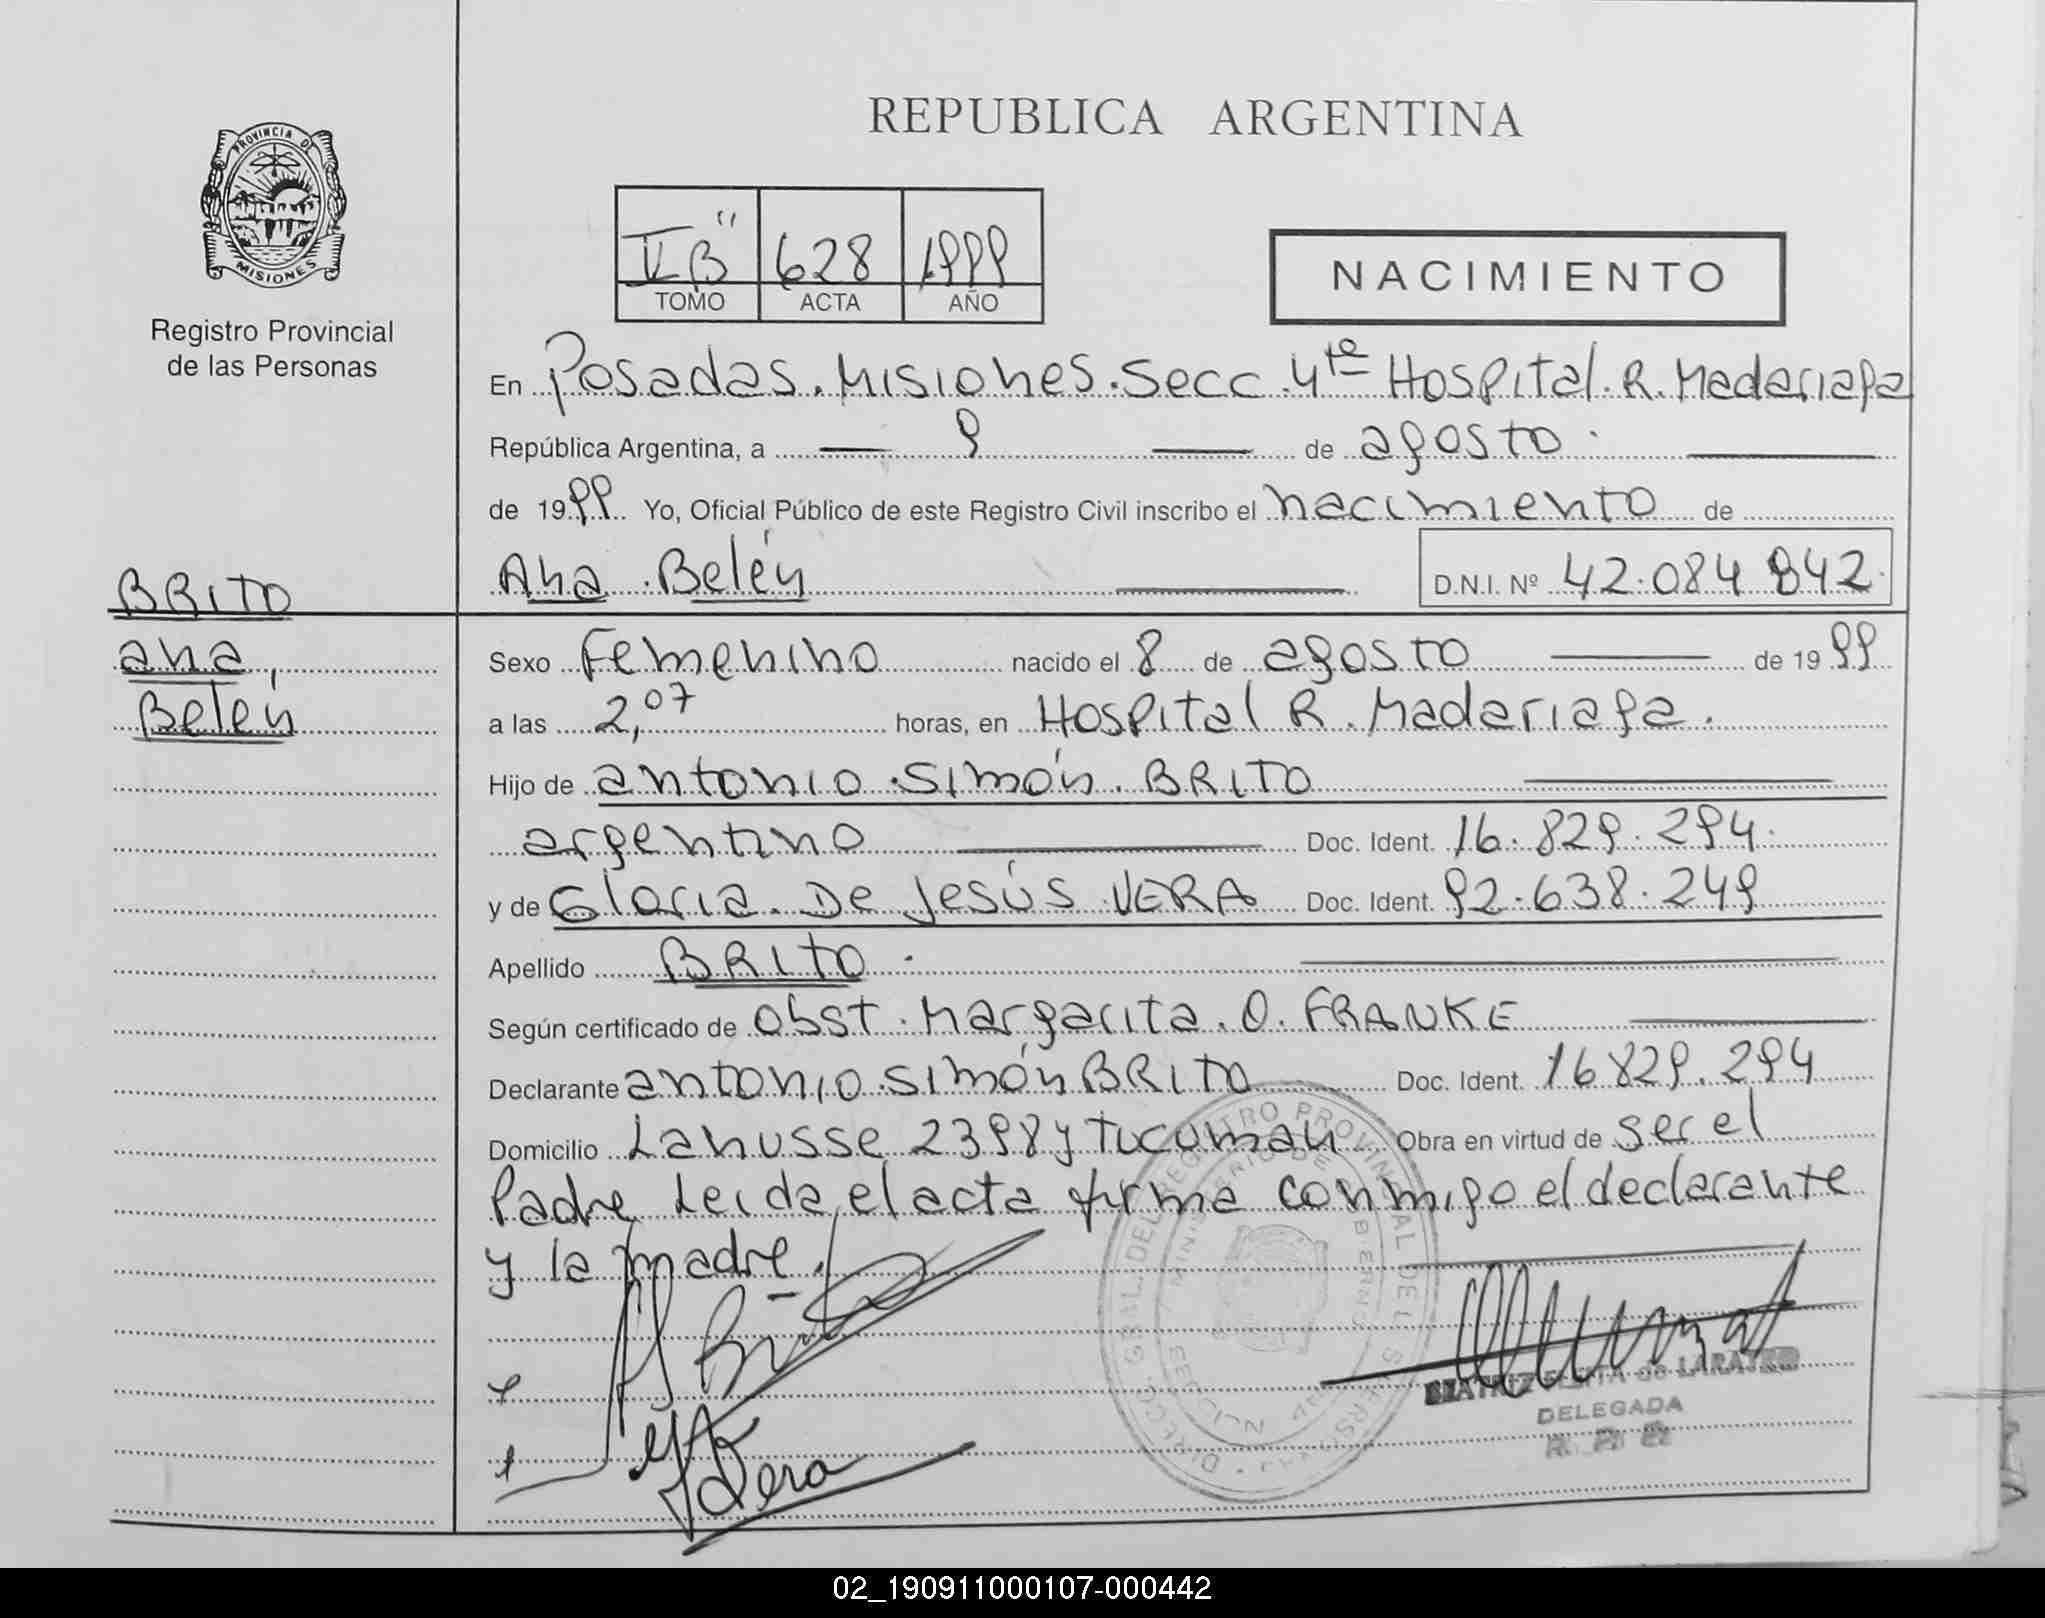 REPUBLICA ARGENTINA
PROVINCIA DE
MISIONES
Registro Provincial
de las Personas
II "B" 628 1999
TOMO ACTA AÑO
NACIMIENTO
En Posadas. Misiones. Secc. 4ta Hospital. R. Madariaga
República Argentina, a 9 de agosto.
de 1999 Yo, Oficial Público de este Registro Civil inscribo el nacimiento de
Ana. Belén D.N.I. Nº 42.084 842.
BRITO
ana,
Belén
Sexo Femenino nacido el 8 de agosto de 1999
a las 2,07 horas, en Hospital R. Madariaga.
Hijo de antonio. Simón. BRITO
argentino Doc. Ident. 16.829.294.
y de Gloria. De Jesús VERA Doc. Ident. 92.638.249
Apellido BRITO.
Según certificado de obst. Margarita. O. FRANKE
Declarante antonio. Simón BRITO Doc. Ident. 16829.294
Domicilio Lanusse 2398 y Tucuman Obra en virtud de ser el
Padre Leida el acta firma conmigo el declarante
y la madre.
Vera
DELEGADA
02_190911000107-000442